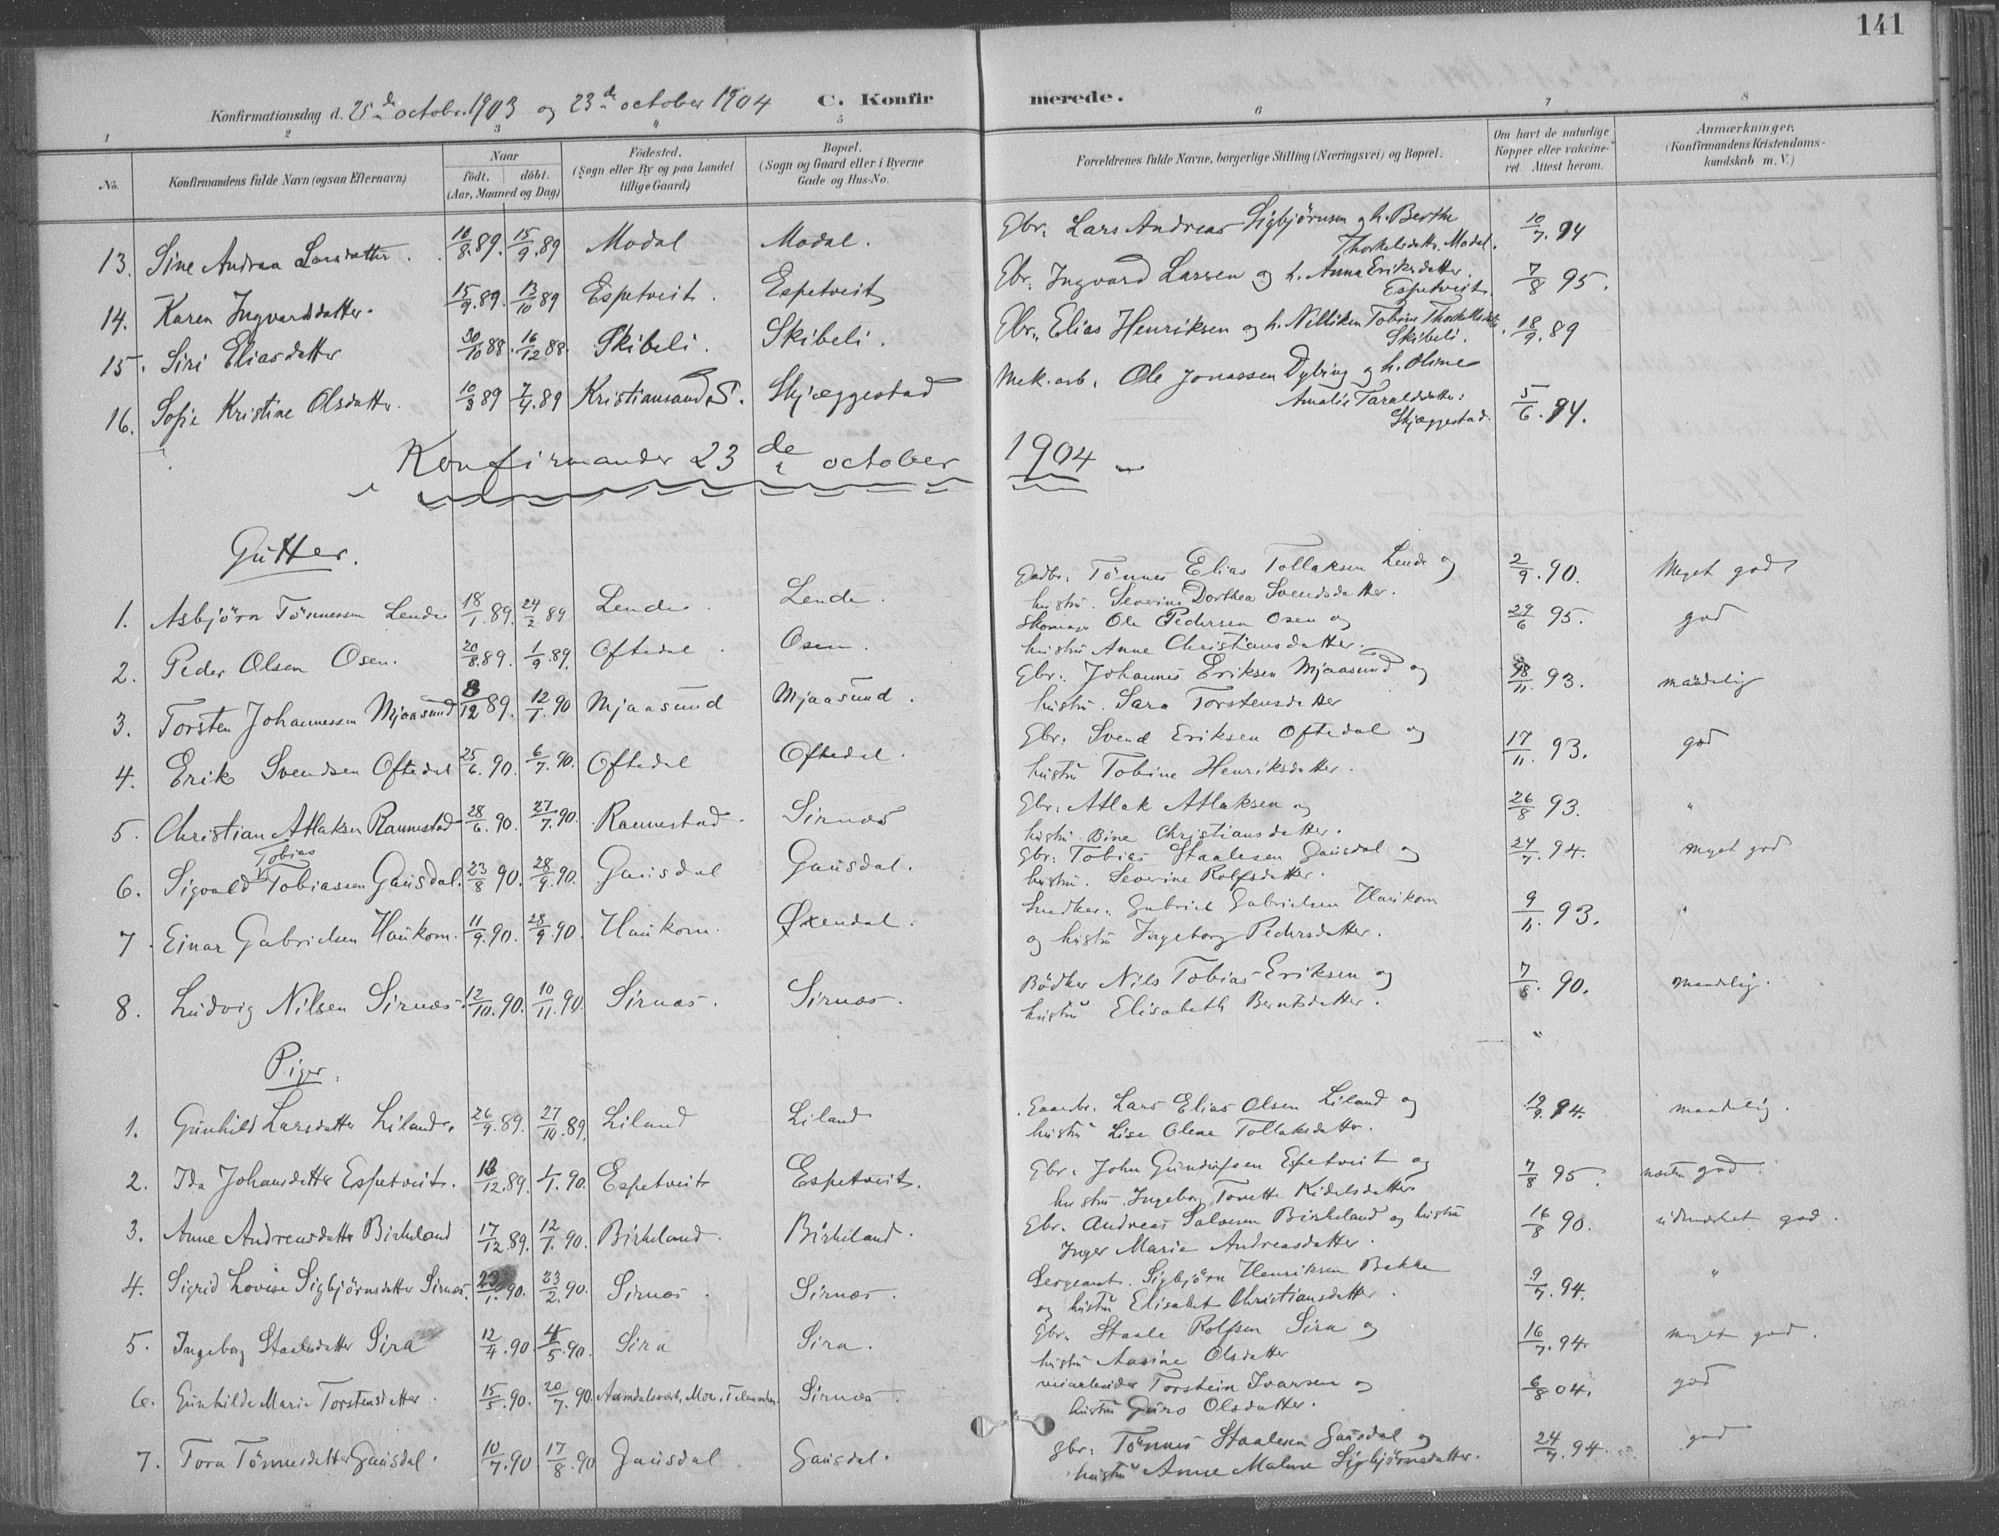 141
Konfirmationsdag d. 25 de octobr. 1903 og 23 de october 1904 C. Konfirmerede.
1 2 3 4 5 6 7 8
No. Konfirmandens fulde Navn (ogsaa Efternavn) Naar födt. döbt. (Aar, Maaned og Dag) Födested. (Sogn eller By og paa Landet tillige Gaard) Bopæl. (Sogn og Gaard eller i Byerne Gade og Hus-No. Forældrenes fulde Navne, borgerlige Stilling (Næringsvei) og Bopæl. Om havt de naturlige Kopper eller vakcineret. Attest herom. Anmærkninger. (Konfirmandens Kristendomskundskab m. V.)
13. Sine Andrea Larsdatter. 10/8.89. 15/9.89 Modal Modal. Gbr. Lars Andreas Sigbjørnsen og h. Berthe Thorkelsdatt. Modal. 10/7.94
14. Karen Ingvardsdatter. 15/9.89. 13/10 89 Espetveit. Espetveit Gbr. Ingvard Larsen og h. Anna Eriksdatter. Espetveit. 7/8 95.
15. Siri Eliasdatter 30/10 88. 16/12 88. Skibeli. Skibeli. Gbr. Elias Henriksen og h. Nilliken Tobine Skibeli. 18/9.89
16. Sofie Kristine Olsdatter. 10/3 89 7/4.89 Kristiansand S. Skjæggestad Mek. arb. Ole Jonassen Dybing og h. Oline Amalie Taraldsdatter: Skjæggestad. 5/6.94.
Konfirmander 23 de october 1904
Gutter.
1. Asbjörn Tönnessen Lende 18/1.89. 24/2 89 Lende. Lende. Gadbr. Tönnes Elias Tollaksen Lende og hustru. Severine Dorthea Svendsdatter. 2/9.90. Meget god
2. Peder Olsen Osen. 20/8.89. 1/9.89. Oftedal. Osen. Skomager Ole Pedersen Osen og hustru Anne Christiansdatter. 29/6 95. god
3. Torsten Johannessen Mjaasund 8/12 89. 12/1.90 Mjaasund Mjaasund. Gbr. Johannes Eriksen Mjaasund og hustru. Sara Torstensdatter 93. maadelig
4. Erik Svendsen Oftedal 25/6.90. 6/7.90. Oftedal Oftedal. Gbr. Svend Eriksen Oftedal og hustru Tobine Henriksdatter. 17/11. 93. god
5. Christian Atlaksen Rannestad 28/6.90. 27/7.90. Rannestad. Sirnæs Gbr. Atlak Atlaksen og hustru. Bine Christiansdatter. 26/8 93. "
6. Sigvald Tobias Tobiassen Gausdal. 23/8 90. 28/9.90. Gausdal Gausdal. Gbr: Tobias Staalesen Gausdal og hustru. Severine Rolfsdatter. 24/7.94. meget god
7. Einar Gabrielsen Haukom. 11/9.90. 28/9.90. Haukom. Øxendal. Snedker. Gabriel Gabrielsen Haukom og hustru Ingeborg Pedersdatter. 9/11. 93. "
8. Ludvig Nilsen Sirnæs. 12/10.90. 10/11.90. Sirnæs. Sirnæs. Bödker Nils Tobias Eriksen og hustru Elisabeth Berntsdatter. 7/8. 90. maadelig.
"
Piger.
1. Gunhild Larsdatter Liland. 26/9.89. 27/10.89. Liland Liland Gaardbr. Lars Elias Olsen Liland og hustru Lise Olene Tollaksdatter. 19/9.94. maadelig.
2. Ida Johansdatter Espetveit. 18/12.89. 1/1.90. Espetveit Espetveit. Gbr. John Espetveit og hustru Ingeborg Tonette Kidelsdatter 7/8 95. næsten god.
3. Anne Andreasdatter Birkeland 17/12.89. 12/1.90. Birkeland. Birkeland. Gbr. Andreas Salvesen Birkeland og hustru Inger Marie Andreasdatter. 16/8 90. udmærket god.
4. Sigrid Lovise Sigbjörnsdatter Sirnæs. 23/1.90. 23/2.90. Sirnæs. Sirnæs. Sergeant. Sigbjörn Henriksen Bakke og hustru Elisabet Christiansdatter. 9/7.94. "
5. Ingeborg Staalesdatter Sira 12/4.90. 4/5.90. Sira Sira. Gbr. Staale Rolfsen Sira og hustru Aasine Olsdatter 16/7.94. meget god.
6. Gunhilde Marie Torstensdatter. 15/5.90. 20/7.90. Aamdalsverk, Mo, Telemarken. Sirnæs. veiarbeider Torstein Ivarsen og hustru Guro Olsdatter. 6/8 04. god
7. Tora Tönnesdatter Gausdal. 10/7.90 17/8.90 Gausdal Gausdal. gbr: Tönnes Staalesen Gausdal og hustru Anne Malene Sigbjörnsdatter. 24/7.94. god